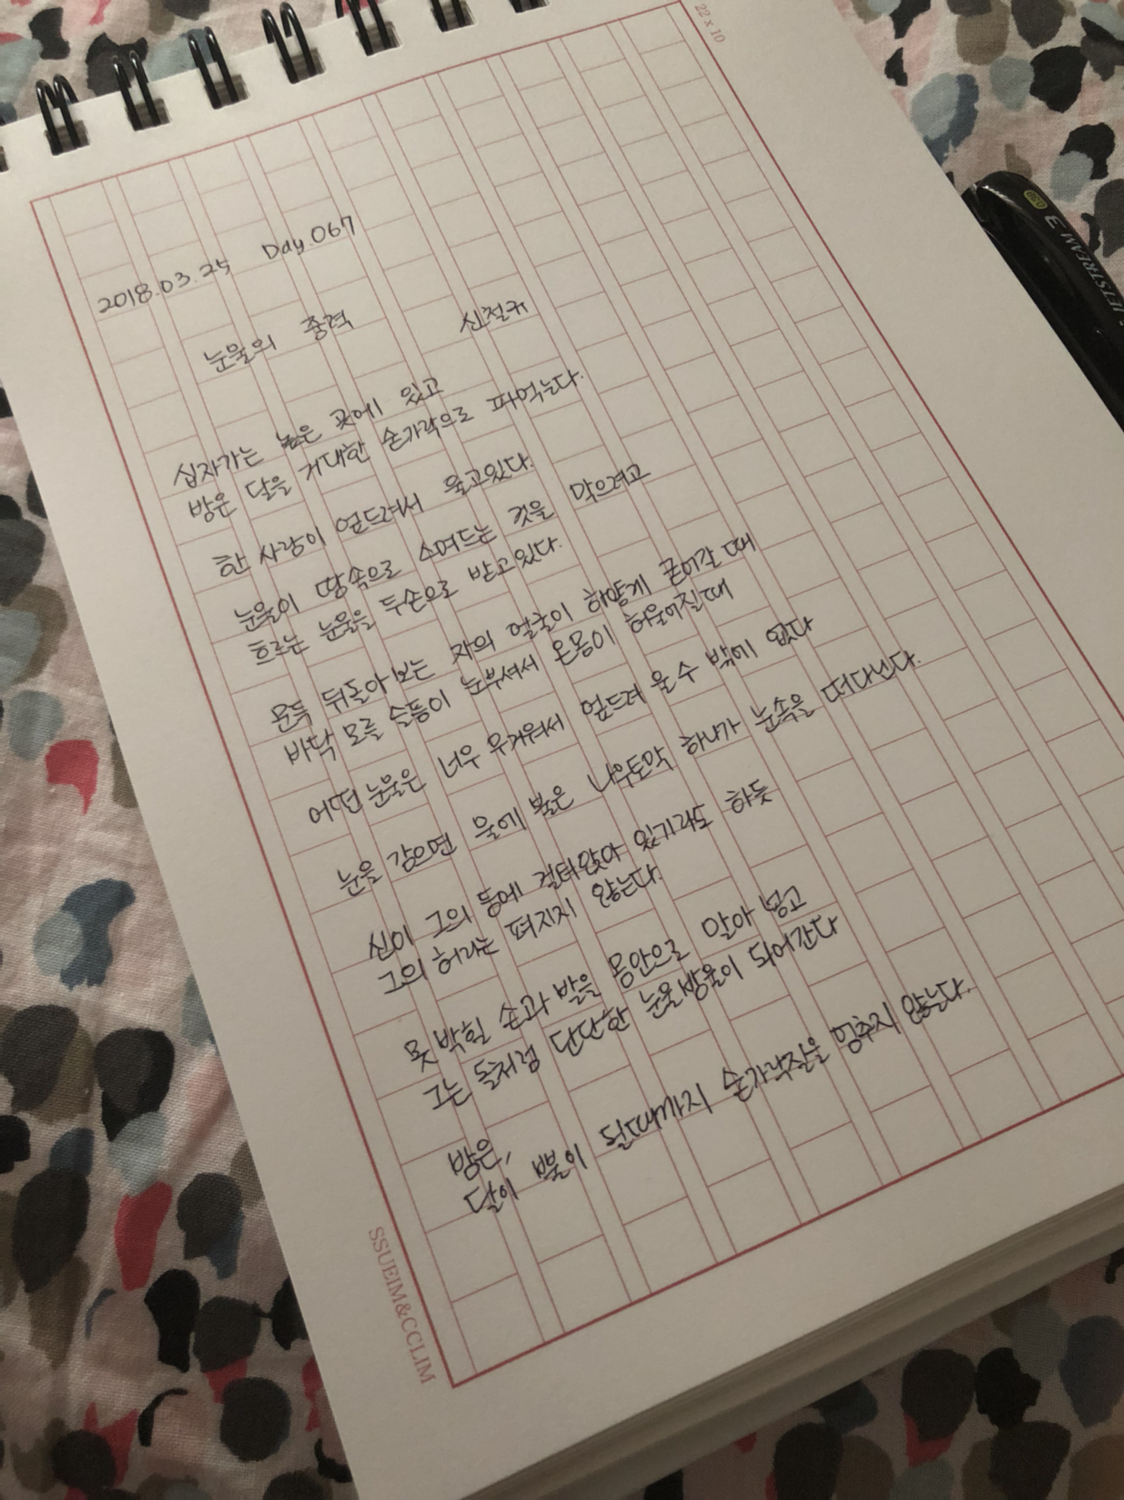 22 x 10
2018.03.25 Day.067
눈물의 중력 신철규
십자가는 높은 곳에 있고
밤은 달을 거대한 숟가락으로 파먹는다.
한 사람이 엎드려서 울고있다.
눈물이 땅속으로 스며드는 것을 막으려고
흐르는 눈물을 두손으로 받고있다.
문득 뒤돌아 보는 자의 얼굴이 하얗게 굳어갈 때
바닥 모를 슬픔이 눈부셔서 온몸이 허물어질 때
어떤 눈물은 너무 무거워서 엎드려 울 수 밖에 없다
눈을 감으면 물에 불은 나무토막 하나가 눈속을 떠다닌다.
신이 그의 등에 걸터앉아 있기라도 하듯
그의 허리는 펴지지 않는다.
못 박힌 손과 발을 몸안으로 말아 넣고
그는 돌처럼 단단한 눈물방울이 되어간다
밤은,
달이 뿔이 될때까지 숟가락질을 멈추지 않는다.
SSUEIM&CCLIM
JETSTREAM 3